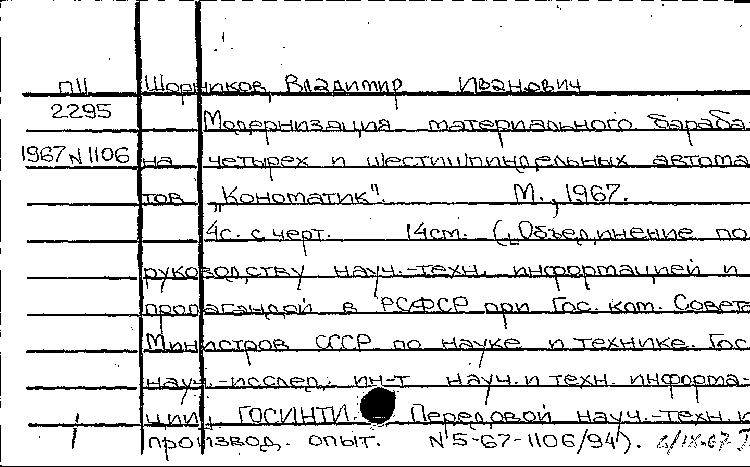 П11 Шорников, Владимир Иванович
2295
Модернизация материального бараба-
1967 N 1106 на четырех и шестишпиндельных автома
тов „Кономатик". М., 1967.
4с. с черт. 14см. („Объединение по
руководству науч.-техн. информацией и
пропагандой в РСФСР при Гос. ком. Совета
Министров СССР по науке и технике. Гос
науч.-исслед. ин-т науч. и техн. информа-
ции, ГОСИНТИ. Передовой науч.-техн. и
производ. опыт. N 5-67-1106/94).